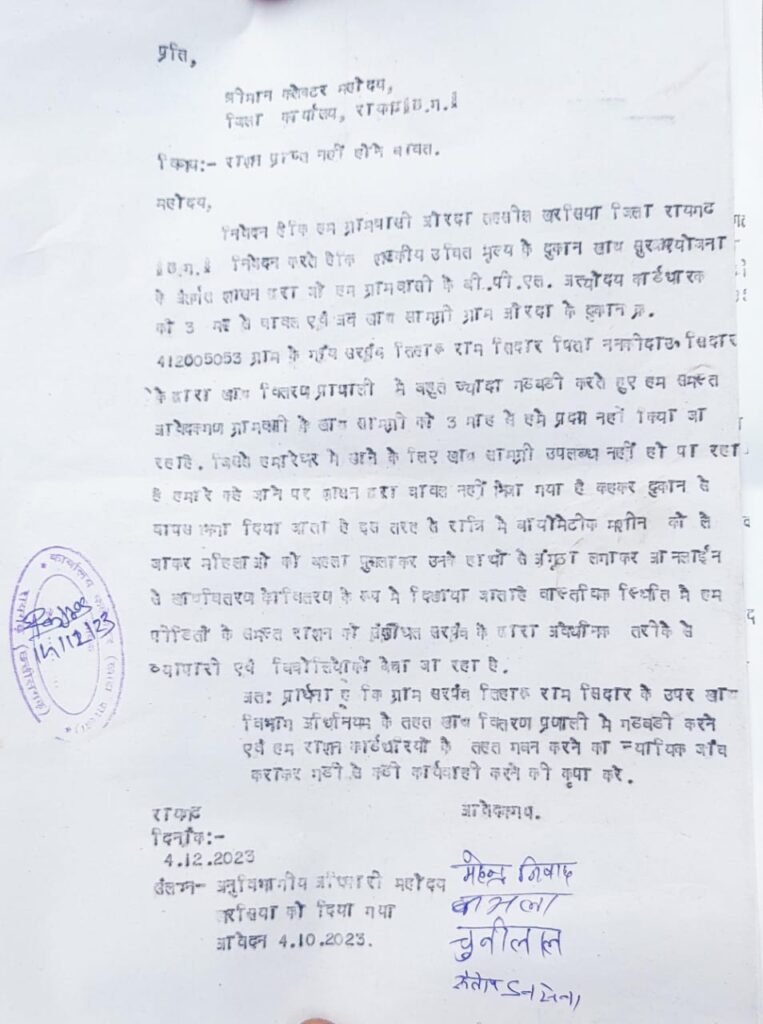 प्रति,
श्रीमान कलेक्टर महोदय,
जिला कार्यालय, रायगढ़ छ.ग.
विषय:- राशन प्राप्त नहीं होने बाबत.
महोदय,
निवेदन हैकि हम ग्रामवासी औरदा तहसील खरसिया जिला रायगढ
छ.ग. निवेदन करते हैकि शासकीय उचित मुल्य के दुकान खाद्य सुरक्षायोजना
के अंतर्गत शासन द्वारा जो हम ग्रामवासी के बी.पी.एल. अन्त्योदय कार्डधारक
को 3 माह से चावल एवं अन्य खाद्य सामग्री ग्राम औरदा के दुकान क्र.
412005053 ग्राम के सरपंच तिहारू राम सिदार पिता ननकीदाउ सिदार
के द्वारा खाद्य वितरण प्रणाली मे बहुत ज्यादा गडबडी करते हुए हम समस्त
आवेदकगण ग्रामवासी के खाद्य सामग्री को 3 माह से हमे प्रदाय नहीं किया जा
रहाहै. जिससे हमारेघर मे खाने के लिए खाद्य सामग्री उपलब्ध नहीं हो पा रहा
है हमारे कहे जाने पर शासन द्वारा चावल नहीं भेजा गया है कहकर दुकान से
वापस भगा दिया जाता है इस तरह से रात्रि मे बायोमेटीक मशीन को ले
जाकर महिलाओ को बहला फुसलाकर उनके हाथो से अंगुठा लगाकर आनलाईन
से खाद्यवितरण के रूप मे दिखाया जाताहै वास्तविक स्थिति मे हम
पीडितो के समस्त राशन को संबंधित सरपंच के द्वारा अवैधानिक तरीके से
व्यापारी एवं बिचौलियोको बेचा जा रहा है.
अत: प्रार्थना है कि ग्राम सरपंच तिहारू राम सिदार के उपर खाद्य
विभाग अधिनियम के तहत खाद्य वितरण प्रणाली मे गडबडी करने
एवं हम राशन कार्डधारियो के तहत गबन करने का न्यायिक जांच
कराकर कडी से कडी कार्यवाही करने की कृपा करे.
रायगढ
आवेदकगण.
दिनांक:-
4.12.2023
संलग्न- अनुविभागीय अधिकारी महोदय
खरसिया को दिया गया
आवेदन 4.10.2023.
महेन्द्र निषाद
कमला
चुनीलाल
कार्यालय कलेक्टर (खाद्य शाखा)
रायगढ़ (छत्तीसगढ़)
14/12/23